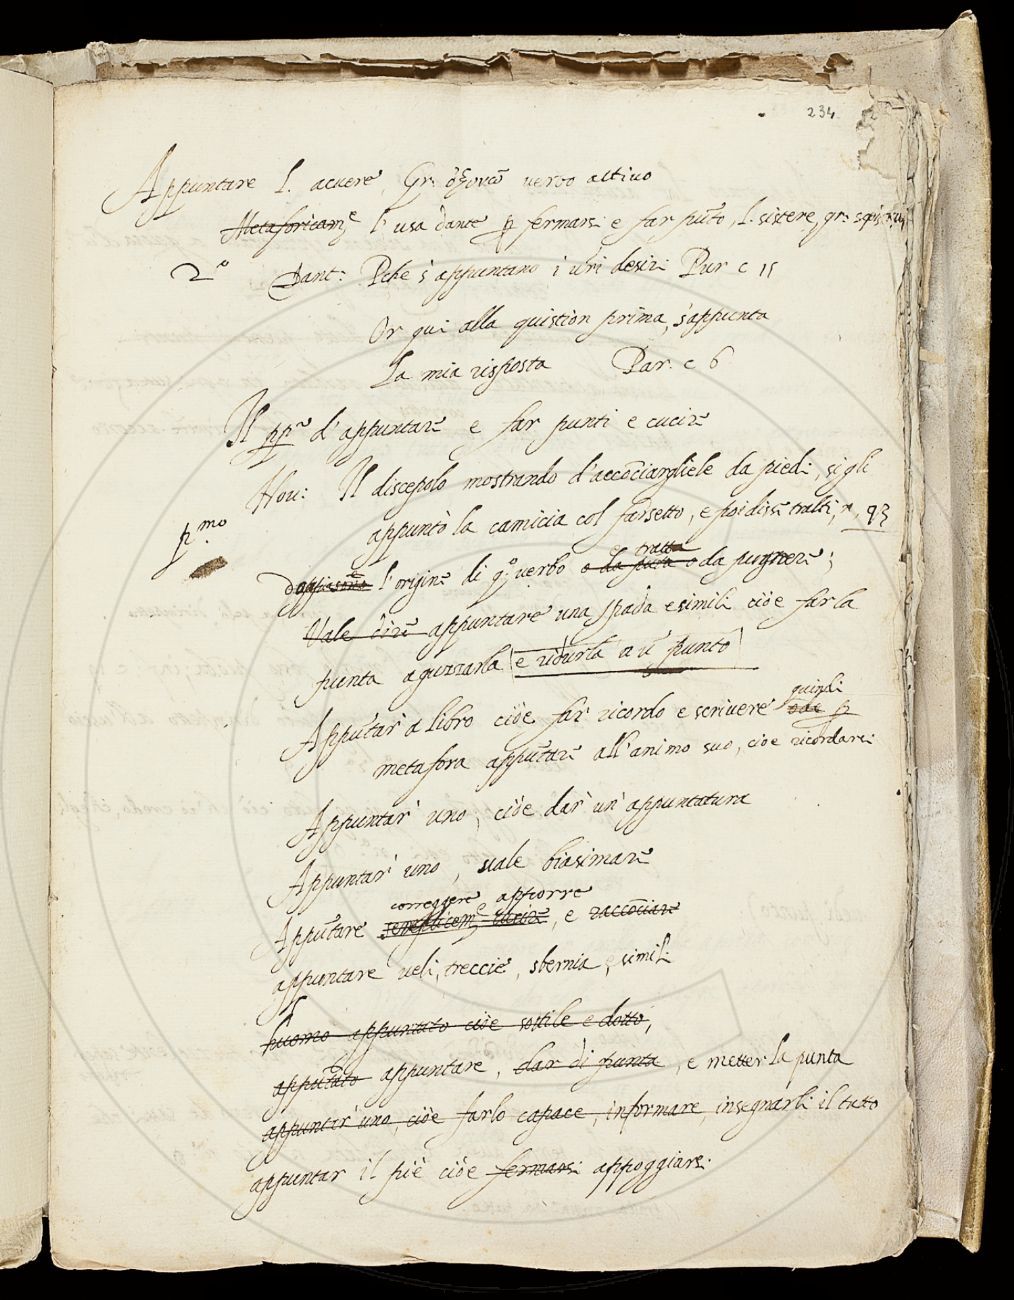 234
Appuntare l. acuere, Gr: ὀξύνω verbo attiuo
Metaforicam̃e l'usa dante p fermarsi e far pũto, l. sistere, gr:
2º Dant: Pche s'appuntano i ur̃i desiri Pur c 15
Or qui alla quistion prima, s'appunta
La mia risposta Par: c 6
Il pp̃e d'appuntarẽ e far punti e cucirẽ
Nou: Il discepolo mostrando d'accõciargliele da piedi, si gli
appuntò la camicia col farsetto, e poi dissẽ tralti, n. 93
p.mo
l'originẽ di q.º uerbo o da e tratto o da pugnerẽ;
Vale dirẽ appuntarẽ una spada e simili cioè farla
punta aguzzarla e ridurla a ũ punto
Appũtar' a libro cioè far ricordo e scriuere quindi p
metafora appũtarẽ all'animo suo, cioè ricordarsi
Appuntar' uno, cioè dar' un' appuntatura
Appuntar' uno, uale biasimarẽ
correggere e apporre
Appũtare semplicem̃e cucirẽ, e raccõciarẽ
appuntare ueli, treccie, sbernia, e simili
huomo appuntato cioè sottile e dotto,
appũtato appuntare, dar di punta, e metter la punta
appuntar' uno, cioè farlo capace, informare, insegnarli il tutto
appuntar il piè cioè fermarsi appoggiarsi